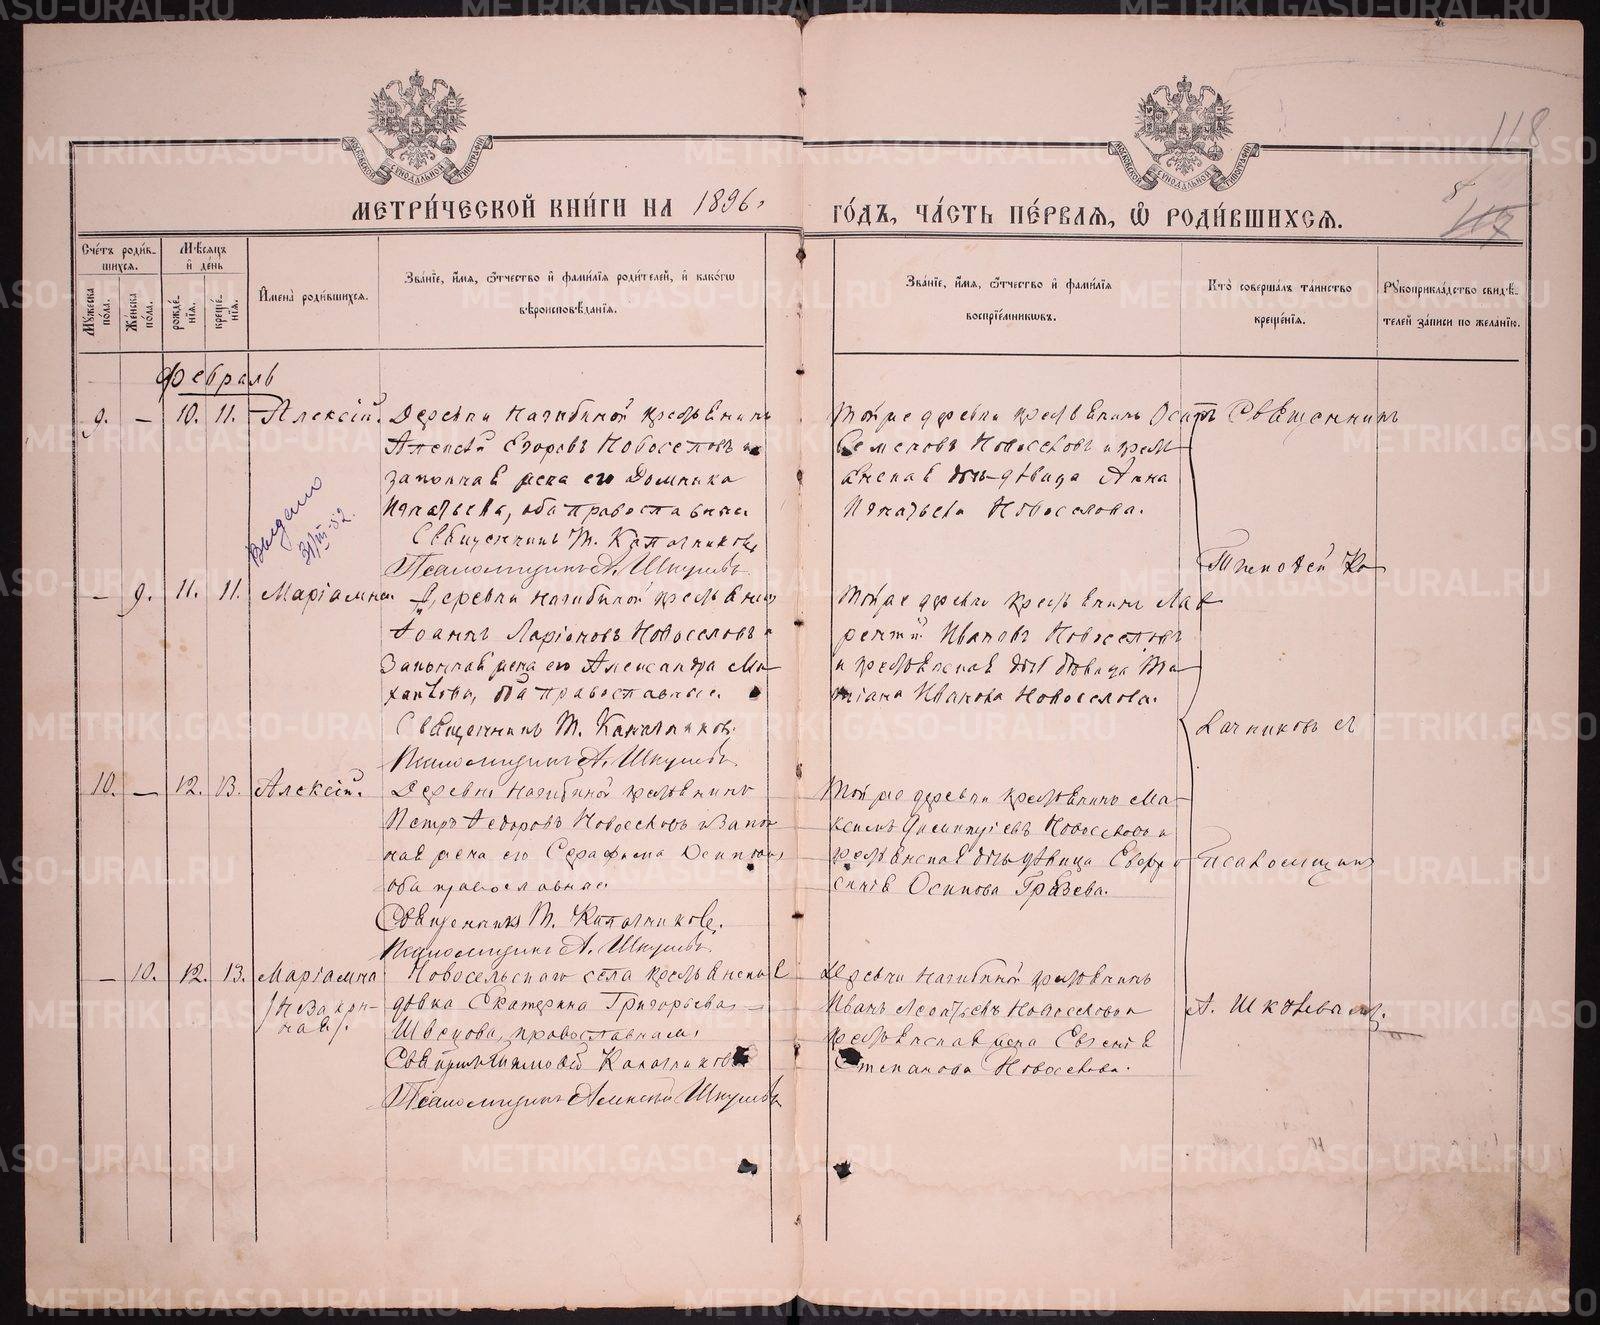 118
8
117
МЕТРИ́ЧЕСКОЙ КНИ́ГИ НА 1896.
ГО́ДЪ, ЧА́СТЬ ПЕ́РВАѦ, Ѡ҆ РОДИ́ВШИХСѦ.
Сче́тъ роди́в-
шихсѧ.
Мꙋжеска по́ла.
Же́нска по́ла.
Мѣ́сѧцъ и҆ де́нь
рожде́-
нїѧ.
креще́-
нїѧ.
И҆мена̀ роди́вшихсѧ.
Зва́нїе, и҆́мѧ, ѻ҆́тчество и҆ фами́лїѧ роди́телей, и҆ како́гѡ
вѣроисповѣ́данїѧ.
Зва́нїе, и҆́мѧ, ѻ҆́тчество и҆ фами́лїѧ
воспрїе́мникѡвъ.
Кто̀ соверша́лъ та́инство
креще́нїѧ.
Рꙋкоприкла́дство свидѣ́-
телей за́писи по жела́нїю.
Февраль
9. — 10. 11. Алексій. Деревни Нагибиной крестьянинъ
Алексѣй Егоровъ Новоселовъ и
законная жена его Домника
Игнатьева, оба православные.
Священникъ Т. Калачниковъ
Псаломщикъ А. Шкулевъ.
Той же деревни крестьянинъ Осипъ
Семеновъ Новоселовъ и крест-
янская дочь-дѣвица Анна
Игнатьева Новоселова.
Священникъ
Тимофей Ка-
Выдано
31/III-52.
— 9. 11. 11. Маріамна. Деревни Нагибиной крестьянинъ
Іоаннъ Ларіоновъ Новоселовъ и
законная жена его Александра Ма-
православные.
Священникъ Т. Калачниковъ.
Псаломщикъ А. Шкулевъ.
Той же деревни крестьянинъ Лав-
рентій Ивановъ Новоселовъ
и крестьянская дочь дѣвица Та-
тіана Иванова Новоселова.
лачниковъ и
10. — 12. 13. Алексій. Деревни Нагибиной крестьянинъ
Петръ Ѳедоровъ Новоселовъ и закон-
ная жена его Серафима Осипова,
оба православные.
Священникъ Т. Калачниковъ.
Псаломщикъ А. Шкулевъ.
Той же деревни крестьянинъ Ма-
ксимъ Новоселовъ и
крестьянская дочь дѣвица Евфро-
синія Осипова
псаломщикъ
— 10. 12. 13. Маріамна Новосельскаго села крестьянская
/Незакон-
ная/.
дѣвка Екатерина Григорьева
Швецова, православная.
Тимофей Калачниковъ
Псаломщикъ Алексѣй Шкулевъ
Деревни Нагибиной крестьянинъ
Иванъ Леонтьевъ Новоселовъ и
крестьянская жена Евгенія
Степанова Новоселова.
А. Шкулевъ